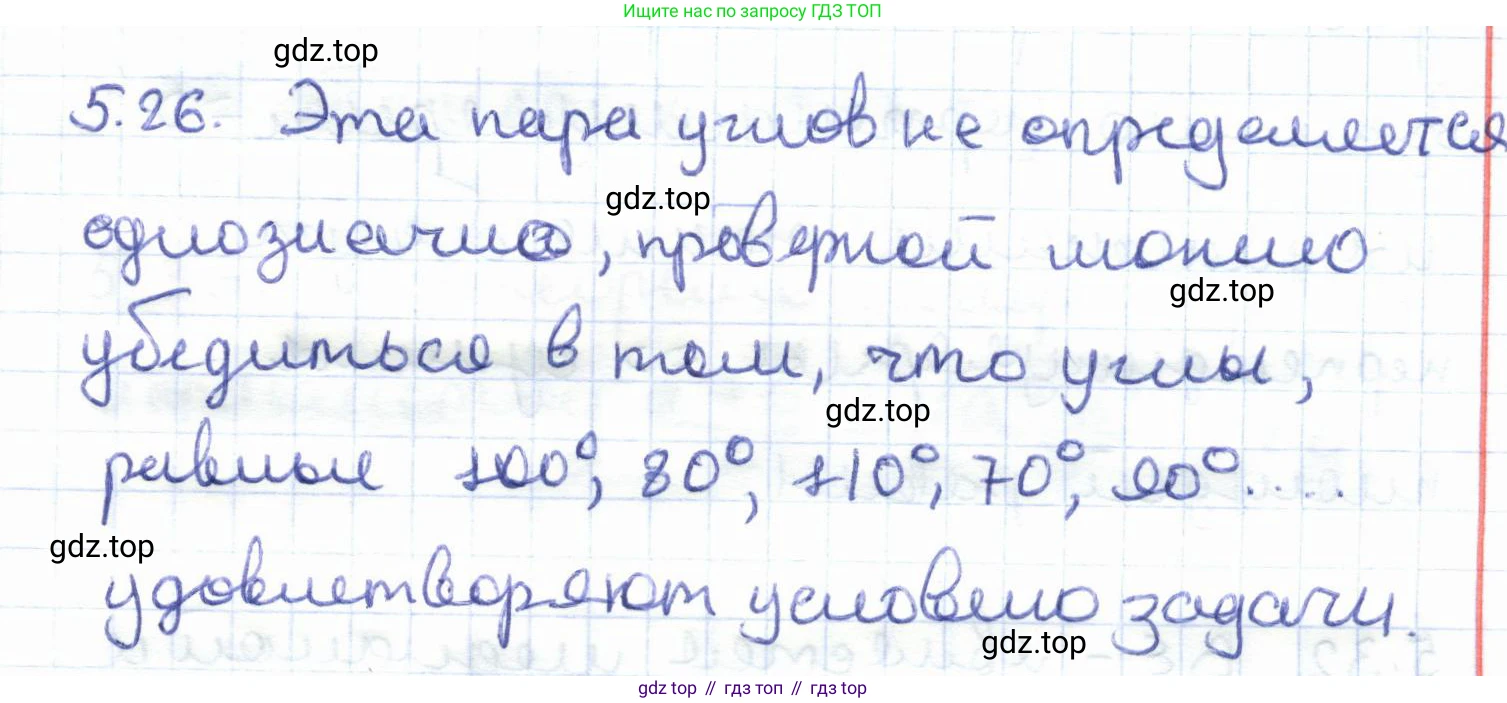 Ищите нас по запросу ГДЗ ТОП
gdz.top
5.26. Эта пара углов не определяется
gdz.top
однозначно, проверкой можно
gdz.top
убедиться в том, что углы,
gdz.top
равные 100°, 80°, 110°, 70°, 90°.....
gdz.top
удовлетворяют условию задачи.
gdz.top
gdz top // гдз топ // гдз top